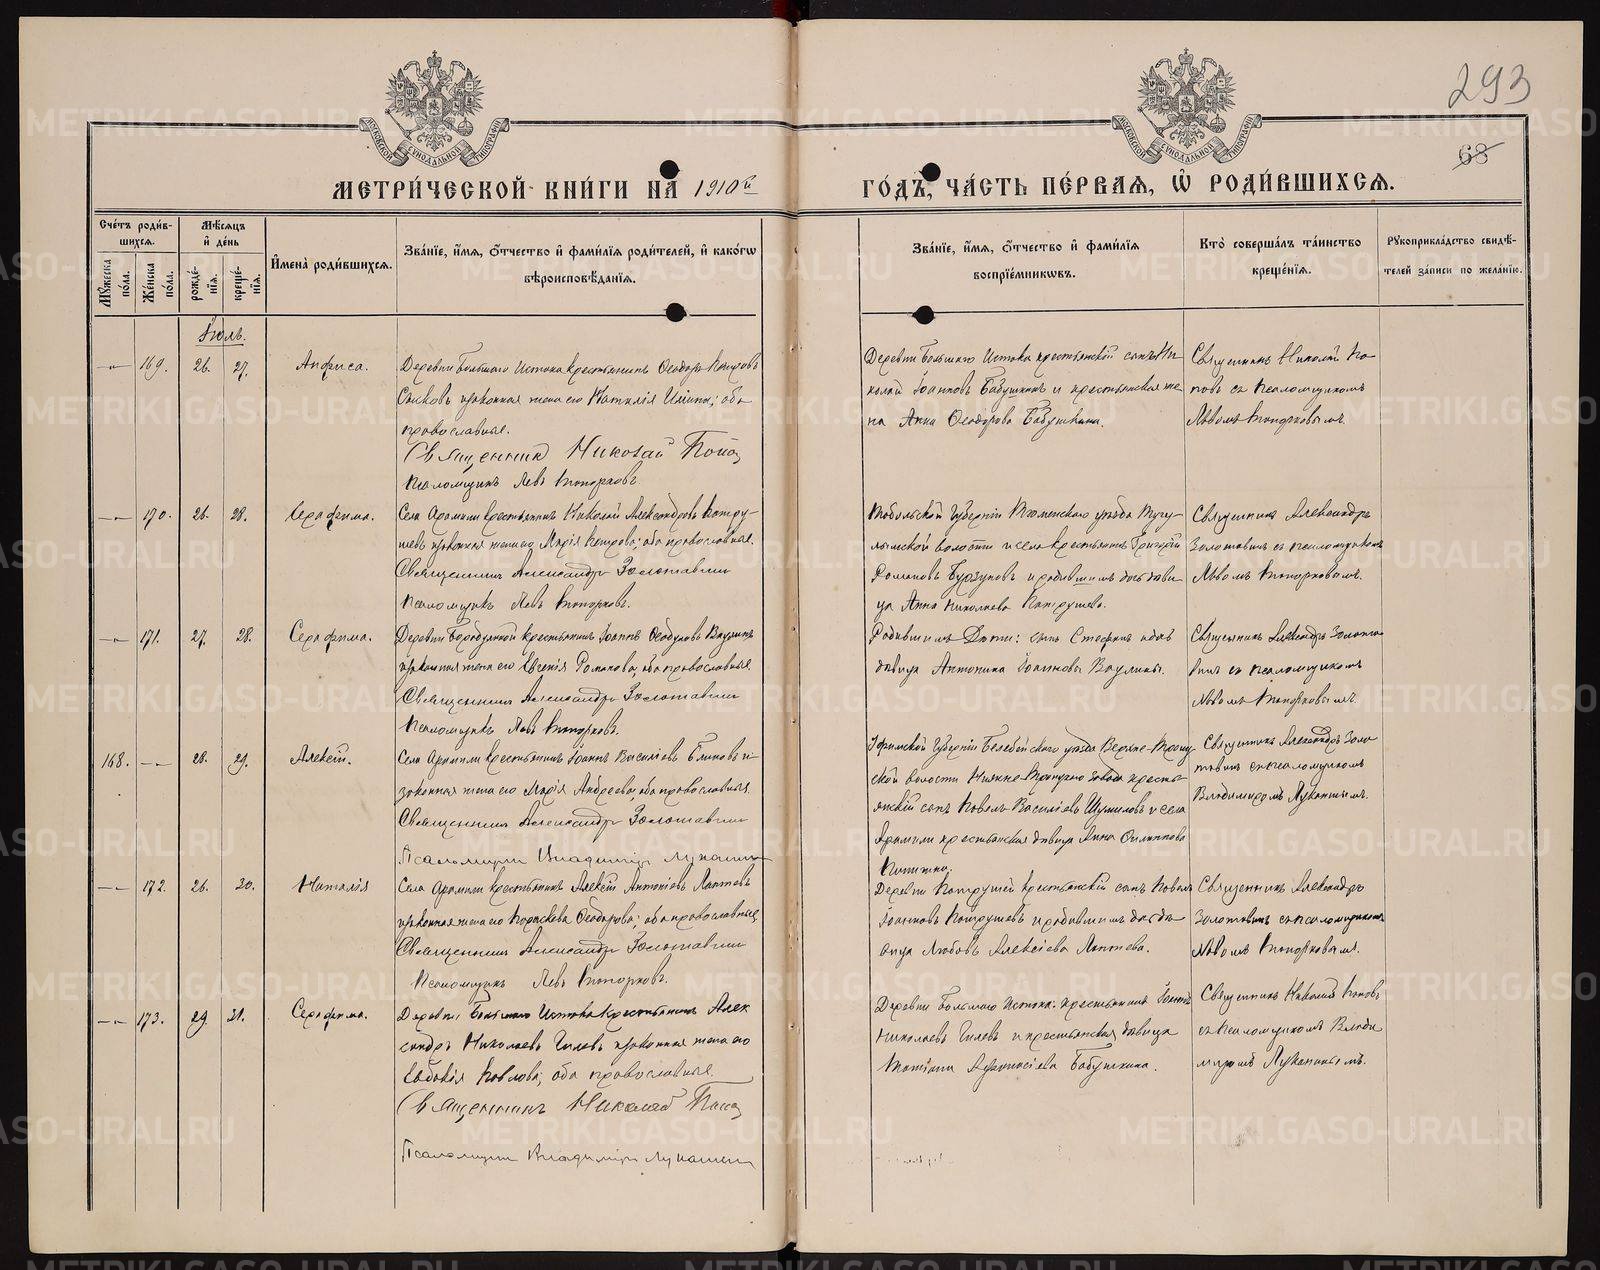 293
68
МЕТРИ́ЧЕСКОЙ КНИ́ГИ НА 1910й ГО́ДЪ, ЧА́СТЬ ПЕ́РВАЯ, Ѡ҆ РОДИ́ВШИХСЯ.
Сче́тъ роди́в-
шихся.
Мꙋ́жеска по́ла.
Же́нска по́ла.
Мѣ́сяцъ
и҆ де́нь
рожде́-
нїя.
креще́-
нїя.
И҆мена̀ роди́вшихся.
Зва́нїе, и҆́мя, ѻ҆́тчество и҆ фами́лїя роди́телей, и҆ како́гѡ
вѣроисповѣ́данїя.
Зва́нїе, и҆́мя, ѻ҆́тчество и҆ фами́лїя
воспрїе́мникѡвъ.
Кто̀ соверша́лъ та́инство
креще́нїя.
Рꙋкоприкла́дство свидѣ́-
телей за́писи по жела́нїю.
Іюль.
169. 26. 27. Анфиса.
Деревни Большаго Истока крестьянинъ Ѳеодоръ Петровъ
законная жена его Наталія Ильина; оба
православные.
Священникъ Николай Попов
Псаломщикъ Левъ Топорковъ.
Деревни Большаго Истока крестьянскій сынъ Ни-
колай Іоанновъ Бабушкинъ и крестьянская же-
на Анна Ѳеодорова Бабушкина.
Священникъ Николай По-
повъ съ псаломщикомъ
Львомъ Топорковымъ.
170. 26. 28. Серафима.
Села Арамили крестьянинъ Николай Александровъ Патру-
шевъ и законная жена его Марія Петрова; оба православные.
Священникъ Александръ Золотавин
Псаломщикъ Левъ Топорковъ.
Тобольской Губерніи Тюменскаго уѣзда Тугу-
лымской волости и села крестьянинъ Григорій
Романовъ и родившимъ дочь дѣви-
ца Анна Николаева Патрушева.
Священникъ Александръ
Золотавинъ съ псаломщикомъ
Львомъ Топорковымъ.
171. 27. 28. Серафима.
Деревни крестьянинъ Іоаннъ Ваулинъ
и законная жена его Евгенія Романова, оба православные.
Священникъ Александръ Золотавин
Псаломщикъ Левъ Топорковъ.
Родившимъ Дѣти: сынъ Стефанъ и дочь
дѣвица Антонина Іоанновы Ваулины.
Священникъ Александръ Золота-
винъ съ псаломщикомъ
Львомъ Топорковымъ.
168. 28. 29. Алексій.
Села Арамили крестьянинъ Іоаннъ Васильевъ Блиновъ и
законная жена его Марія Андреева, оба православные.
Священникъ Александръ Золотавин
Псаломщикъ Владиміръ Лукании
Уфимской Губерніи Белебейскаго уѣзда Верхне-Троиц-
кой волости Нижне-Троицкаго завода кресть-
янскій сынъ Павелъ Василіевъ Шушиловъ и села
Арамили крестьянская дѣвица Анна Филиппова
Священникъ Александръ Золо-
тавинъ съ псаломщикомъ
Владиміромъ Луканинымъ.
172. 26. 30. Наталія
Села Арамили крестьянинъ Алексій Антоніевъ Лаптевъ
и законная жена его Параскева Ѳеодорова; оба православные.
Священникъ Александръ Золотавин
Псаломщикъ Левъ Топорковъ.
Деревни Патрушей крестьянскій сынъ Павелъ
Іоанновъ Патрушевъ и родившимъ дочь дѣ-
вица Любовь Алексіева Лаптева.
Священникъ Александръ
Золотавинъ съ псаломщикомъ
Львомъ Топорковымъ.
173. 29. 31. Серафима.
Деревни Большаго Истока крестьянинъ Алек-
сандръ Николаевъ Гилевъ и законная жена его
Евдокія Павлова; оба православные.
Священникъ Николай Попов
Псаломщикъ Владиміръ Лукании
Деревни Большаго Истока: крестьянинъ Іоаннъ
Николаевъ Гилевъ и крестьянская дѣвица
Татіана Аѳанасіева Бабушкина.
Священникъ Николай Поповъ
съ псаломщикомъ Влади-
міромъ Луканинымъ.